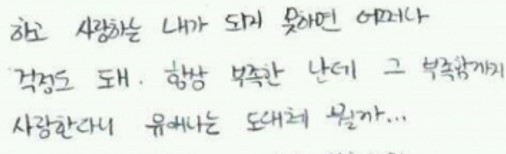 하고 사랑하는 내가 되지 못하면 어쩌나
걱정도 돼. 항상 부족한 난데 그 부족함까지
사랑한다니 유애나는 도대체 뭘까...